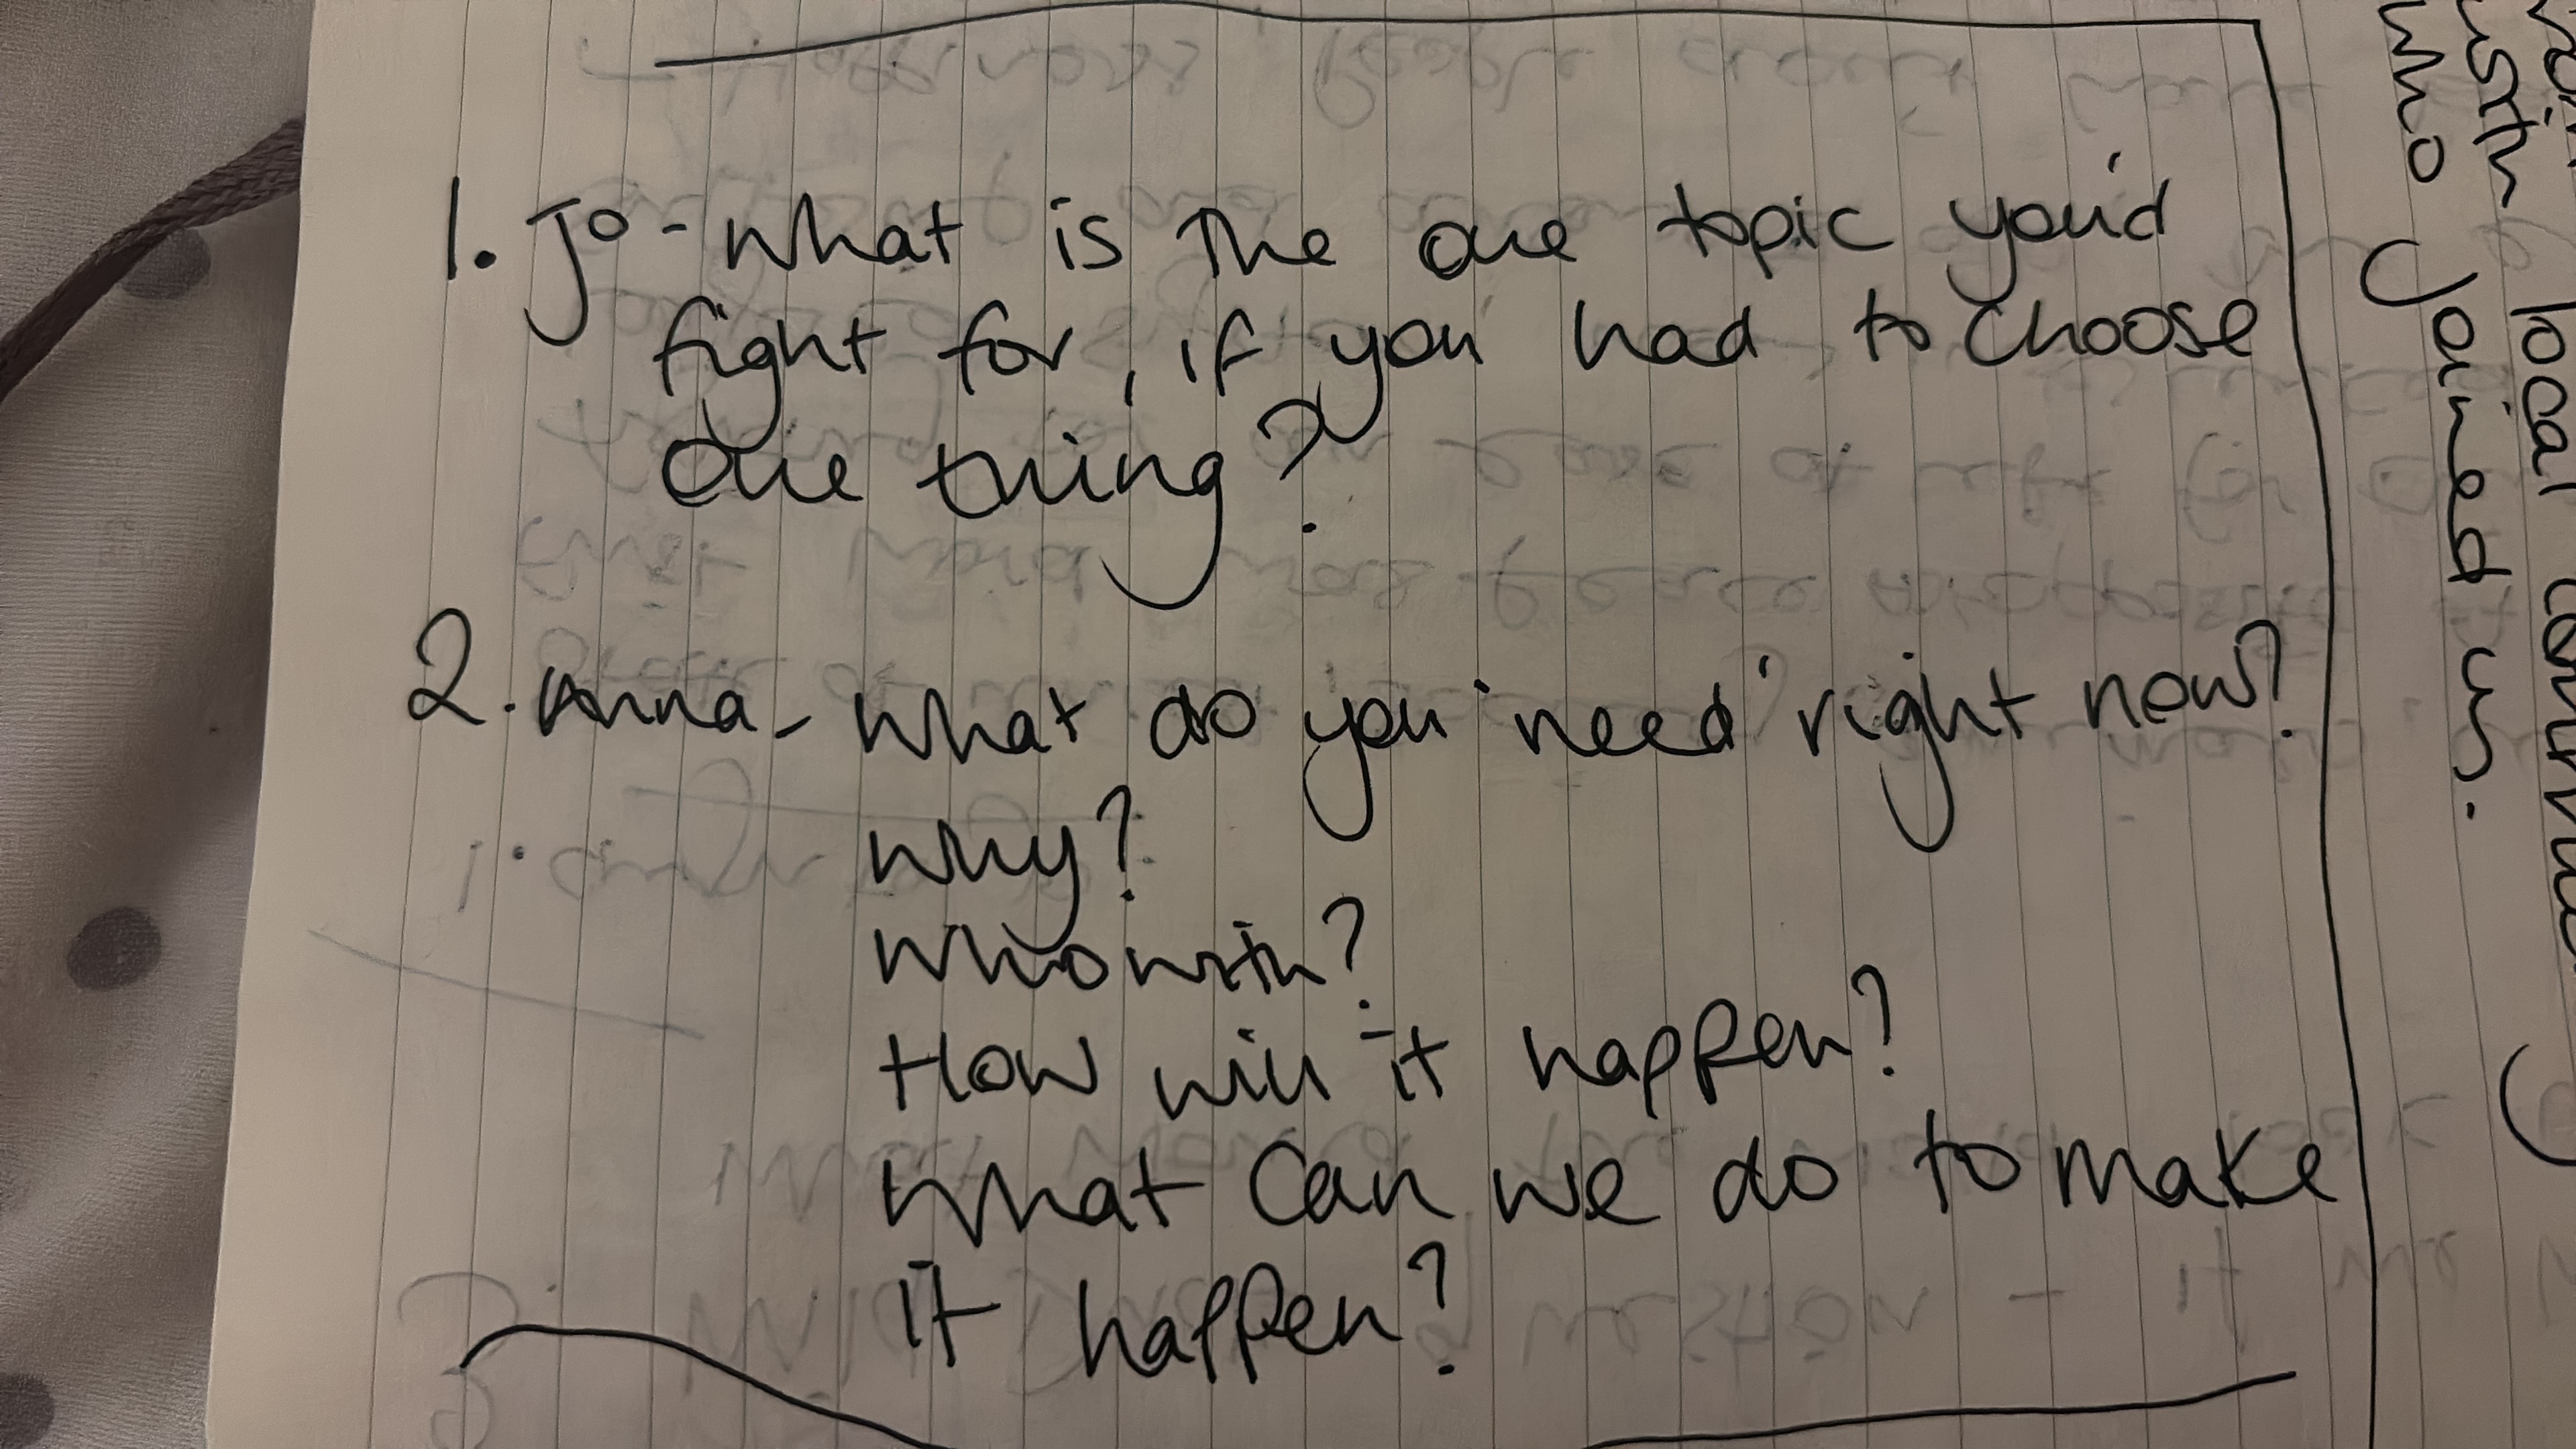 1. Jo - What is the one topic you'd
fight for, if you had to choose
one thing?
2. Anna - What do you 'need' right now?
Why?
Who with?
How will it happen?
What can we do to make
it happen?
who joined us.
local